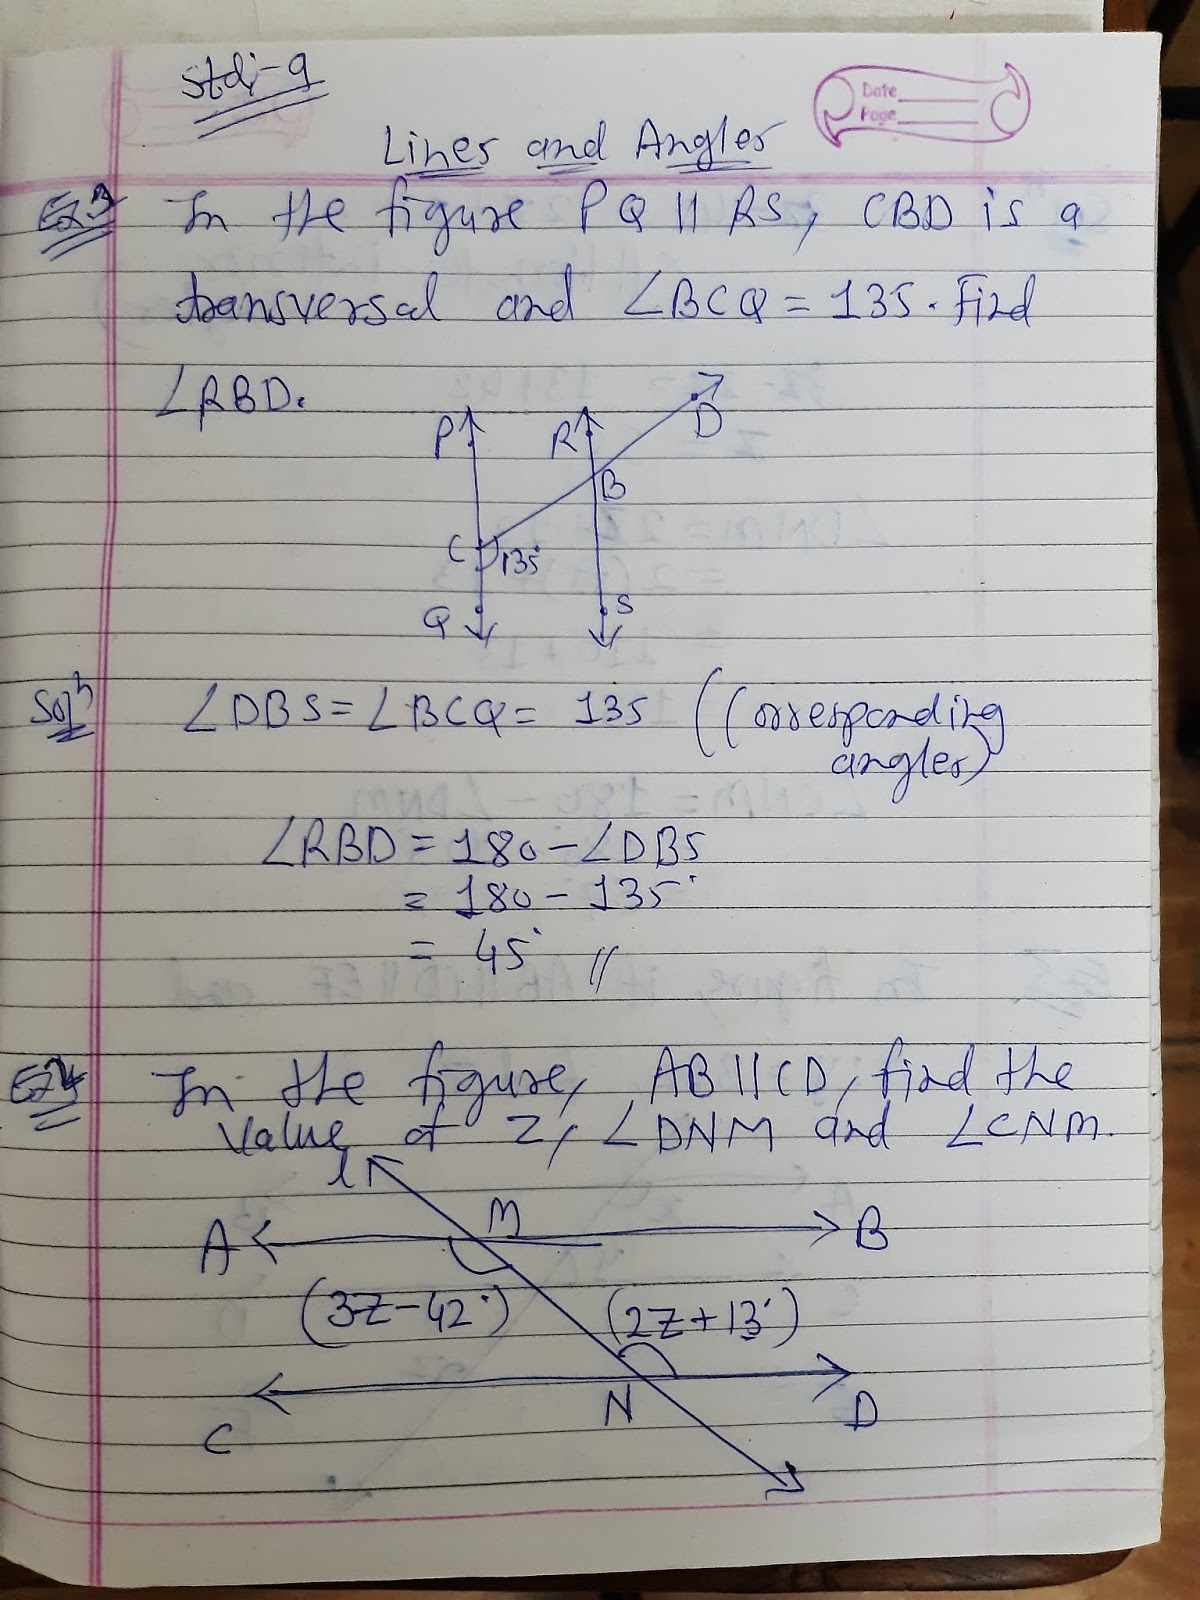 Std:-9
Date
Page
Lines and Angles
Ex3 In the figure PQ || RS, CBD is a
transversal and ∠BCQ = 135. Find
∠RBD.
P R D
B
C 135°
Q S
Soln ∠DBS = ∠BCQ = 135 (Corresponding
angles)
∠RBD = 180 - ∠DBS
= 180 - 135°
= 45° //
Ex4 In the figure, AB || CD, find the
value of Z, ∠DNM and ∠CNM.
l
A M B
(3Z-42°) (2Z+13°)
C N D